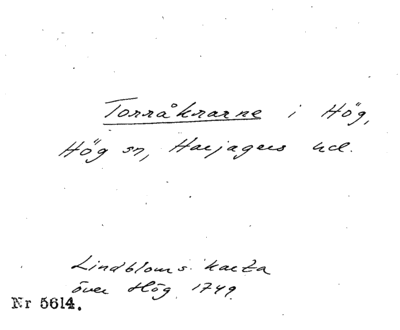 Torråkrarne i Hög,
Hög sn, Harjagers hd.
Lindbloms karta
över Hög 1749.
Nr 5614.